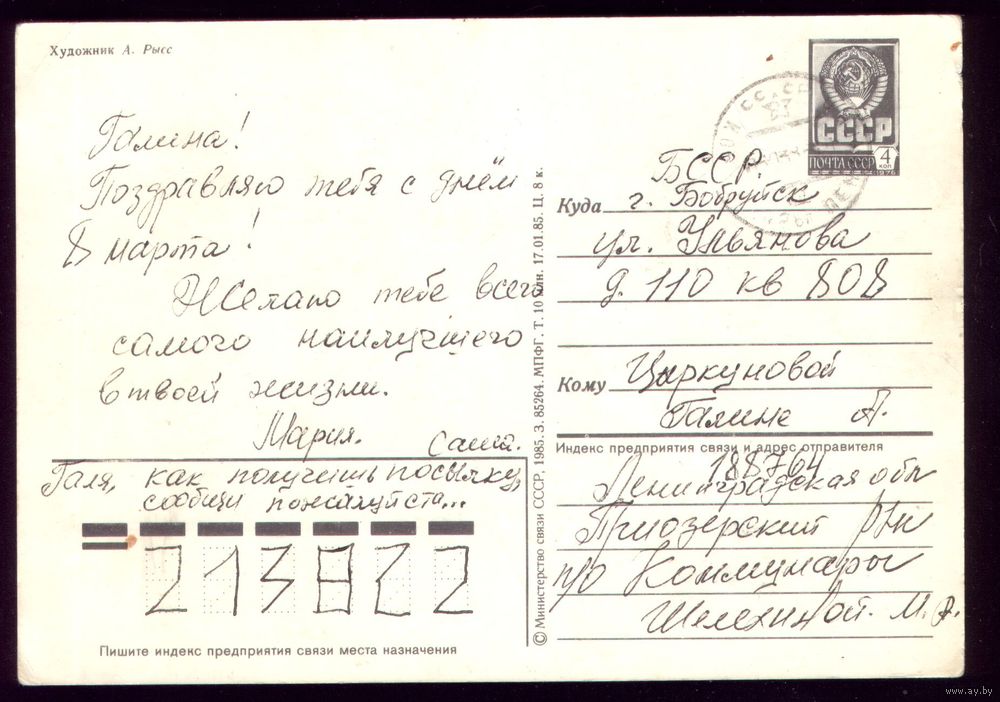 Художник А. Рысс
Галина!
Поздравляю тебя с днём
8 марта!
Желаю тебе всего
самого наилучшего
в твоей жизни.
Мария. Саша.
Галя, как получишь посылку,
сообщи пожалуйста...
213822
Пишите индекс предприятия связи места назначения
© Министерство связи СССР, 1985. З. 85264. МПФГ. Т. 10 млн. 17.01.85. Ц. 8 к.
СССР
ПОЧТА СССР 4 коп
1976
БССР.
Куда г. Бобруйск
ул. Ульянова
д. 110 кв 808
Кому Циркуновой
Галине А.
Индекс предприятия связи и адрес отправителя
188764
Ленинградская обл
Приозерский р-н
п/о Коммунары
Шелехиной М. А.
www.ay.by